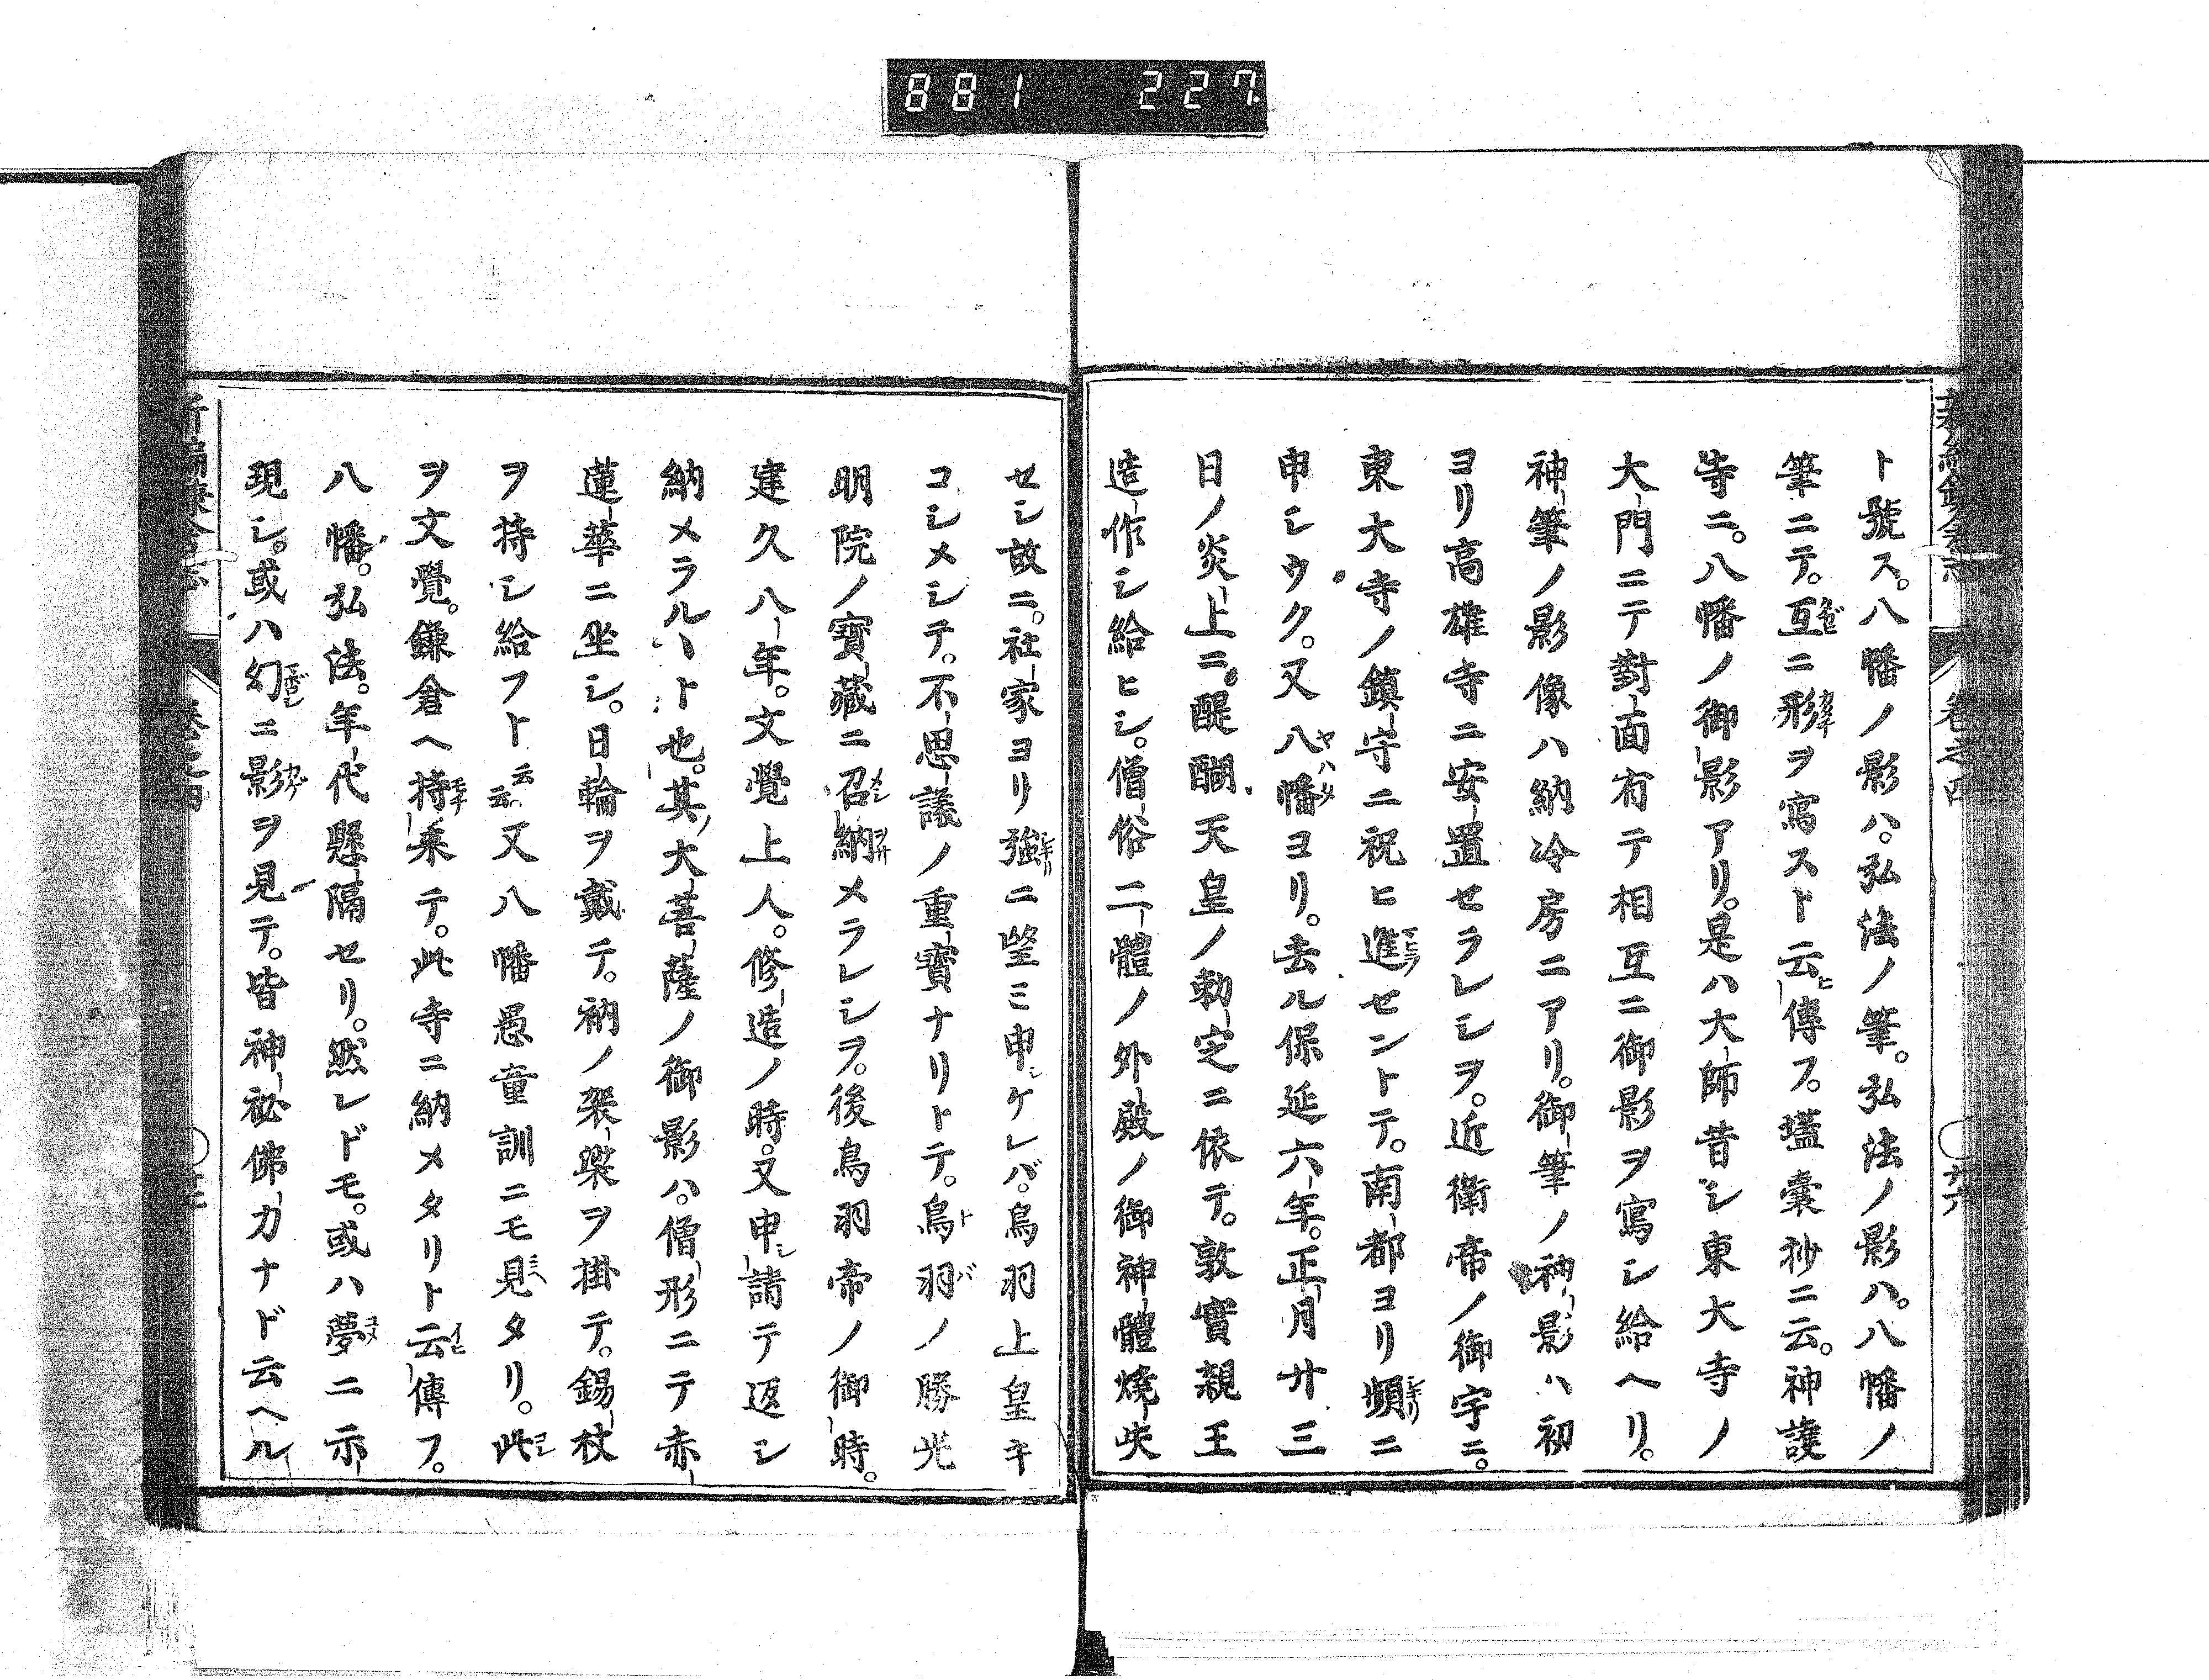 881 227
ト號ス。八幡ノ影ハ。弘法ノ筆。弘法ノ影ハ。八幡ノ
筆ニテ。互ニ形ヲ寫スト云傳フ。壒囊抄ニ云。神護
寺ニ。八幡ノ御影アリ。是ハ大師昔シ東大寺ノ
大門ニテ對面有テ相互ニ御影ヲ寫シ給ヘリ。
神筆ノ影像ハ納冷房ニアリ。御筆ノ神影ハ初
ヨリ高雄寺ニ安置セラレシヲ。近衛帝ノ御宇ニ。
東大寺ノ鎮守ニ祝ヒ進ゼントテ。南都ヨリ頻ニ
申シウク。又八幡ヨリ。去ル保延六年。正月廿三
日ノ炎上ニ。醍醐天皇ノ勅定ニ依テ。敦實親王
造作シ給ヒシ。僧俗二體ノ外殿ノ御神體燒失
セシ故ニ。社家ヨリ強ニ望ミ申ケレバ。鳥羽上皇キ
コシメシテ。不思議ノ重寶ナリトテ。鳥羽ノ勝光
明院ノ寶藏ニ召納メラレシヲ。後鳥羽帝ノ御時。
建久八年。文覺上人。修造ノ時。又申請テ返シ
納メラルヽト也。其大菩薩ノ御影ハ。僧形ニテ赤
蓮華ニ坐シ。日輪ヲ戴テ。衲ノ袈裟ヲ掛テ。錫杖
ヲ持シ給フト云云。又八幡愚童訓ニモ見タリ。此
ヲ文覺。鎌倉ヘ持來テ。此寺ニ納メタリト云傳フ。
八幡。弘法。年代懸隔セリ。然レドモ。或ハ夢ニ示
現シ。或ハ幻ニ影ヲ見テ。皆神祕佛力ナド云ヘル